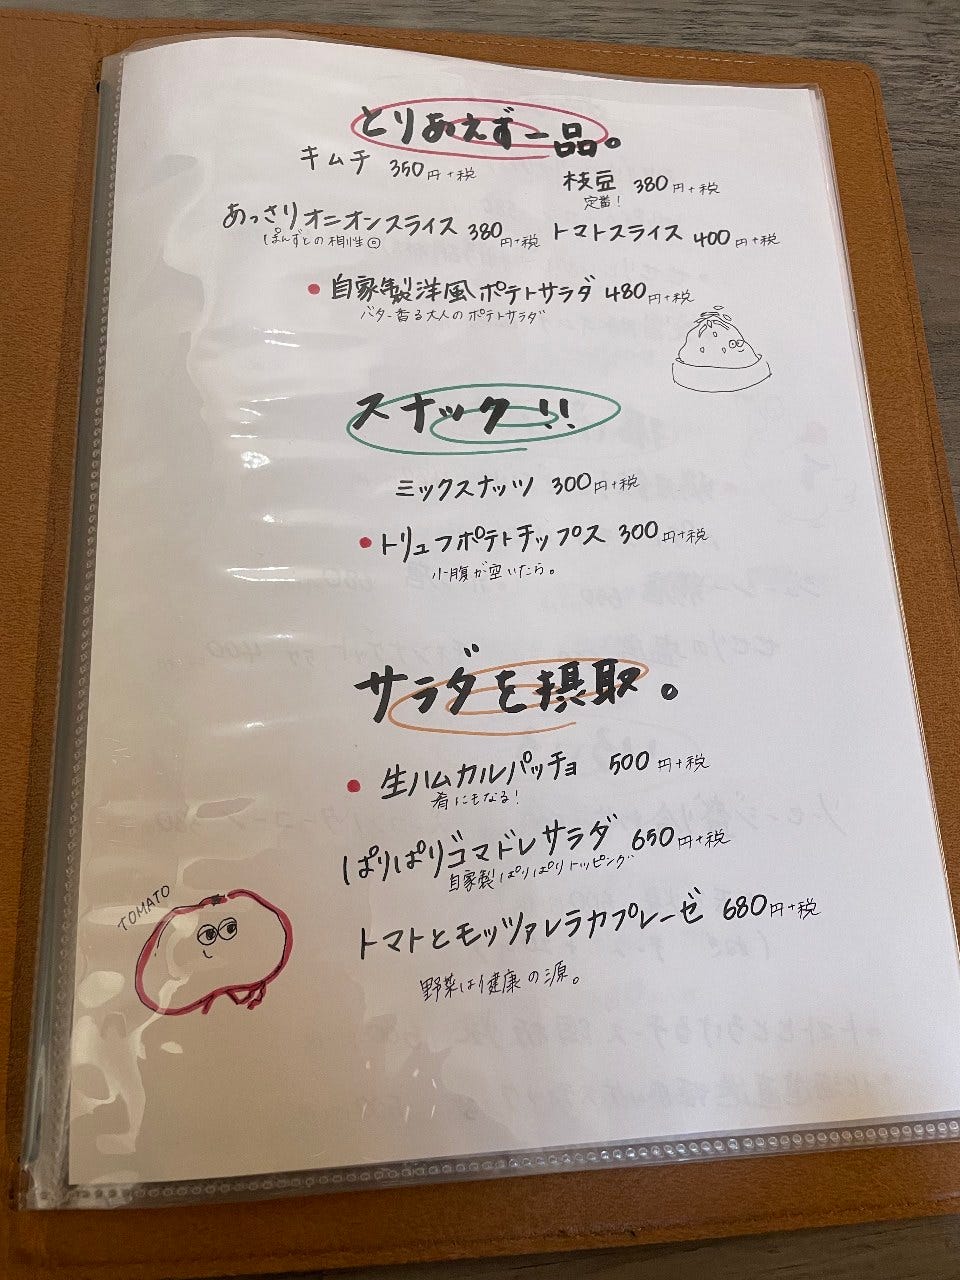 とりあえず一品。
キムチ 350円+税
枝豆 380円+税
定番!
あっさりオニオンスライス 380円+税
ぽんずとの相性◎
トマトスライス 400円+税
● 自家製洋風ポテトサラダ 480円+税
バター香る大人のポテトサラダ
スナック!!
ミックスナッツ 300円+税
● トリュフポテトチップス 300円+税
小腹が空いたら。
サラダを摂取。
● 生ハムカルパッチョ 500円+税
肴にもなる!
ぱりぱりゴマドレサラダ 650円+税
自家製ぱりぱりトッピング
TOMATO
トマトとモッツァレラカプレーゼ 680円+税
野菜は健康の源。